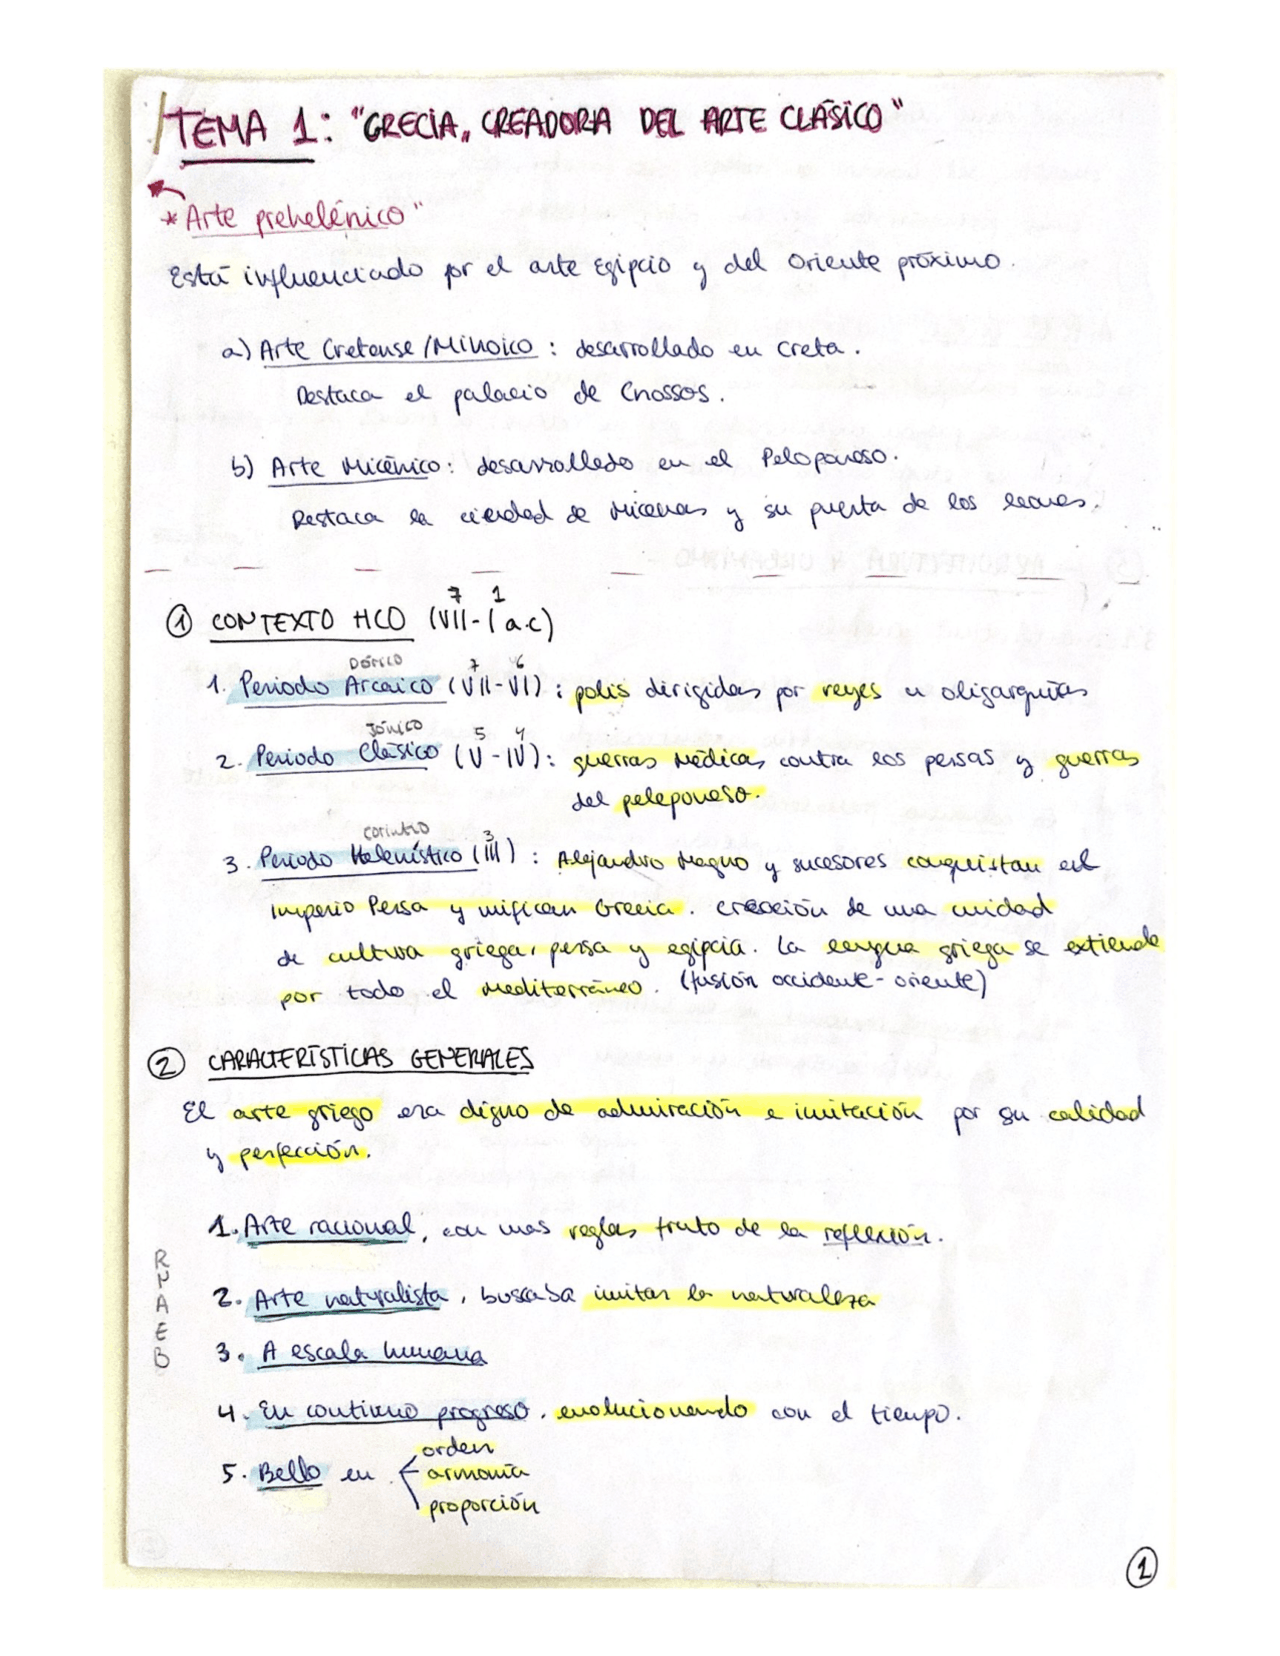 TEMA 1: "GRECIA, CREADORA DEL ARTE CLÁSICO"
* Arte prehelénico"
Está influenciado por el arte Egipcio y del Oriente próximo.
a) Arte Cretense/Minoico : desarrollado en Creta.
Destaca el palacio de Cnossos.
b) Arte Micénico: desarrollado en el Peloponeso.
Destaca la ciudad de Micenas y su puerta de los leones.
7 1
① CONTEXTO HCO (VII-I a.c)
DÓRICO 7 6
1. Periodo Arcaico (VII-VI) : polis dirigidas por reyes u oligarquías
JÓNICO 5 4
2. Periodo Clásico (V-IV): guerras Médicas contra los persas y guerras
del peleponeso.
CORINTIO 3
3. Periodo Helenístico (III) : Alejandro Magno y sucesores conquistan el
imperio Persa y unifican Grecia. Creación de una unidad
de cultura griega, persa y egipcia. La lengua griega se extiende
por todo el Mediterráneo. (fusión occidente-oriente)
② CARACTERÍSTICAS GENERALES
El arte griego era digno de admiración e imitación por su calidad
y perfección.
1. Arte racional, con unas reglas fruto de la reflexión.
2. Arte naturalista, buscaba imitar la naturaleza
3. A escala humana
4. En continuo progreso, evolucionando con el tiempo.
5. Bello en
orden
armonía
proporción
R
N
A
E
B
1